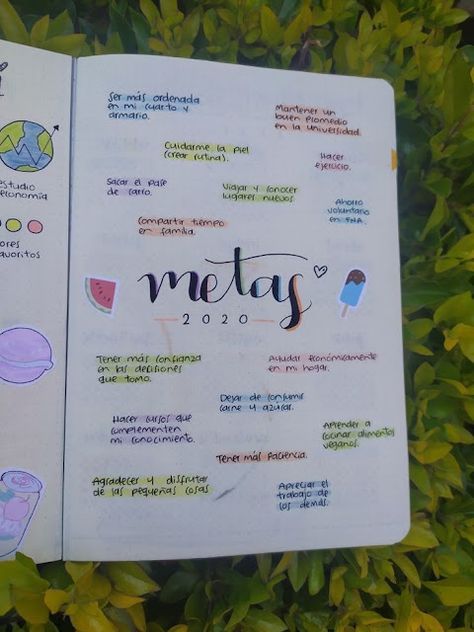 estudio
economía
ores
favoritos
Ser más ordenada
en mi cuarto y
armario.
Mantener un
buen promedio
en la universidad.
Cuidarme la piel
(crear rutina).
Hacer
ejercicio.
Sacar el pase
de carro.
Viajar y conocer
lugares nuevos
Ahorro
voluntario
en FNA.
Compartir tiempo
en familia.
metas
2020
Tener más confianza
en las decisiones
que tomo.
Ayudar económicamente
en mi hogar.
Dejar de consumir
carne y azúcar.
Hacer cursos que
complementen
mi conocimiento.
Aprender a
cocinar alimentos
veganos.
Tener más paciencia.
Agradecer y disfrutar
de las pequeñas cosas
Apreciar el
trabajo de
los demás.